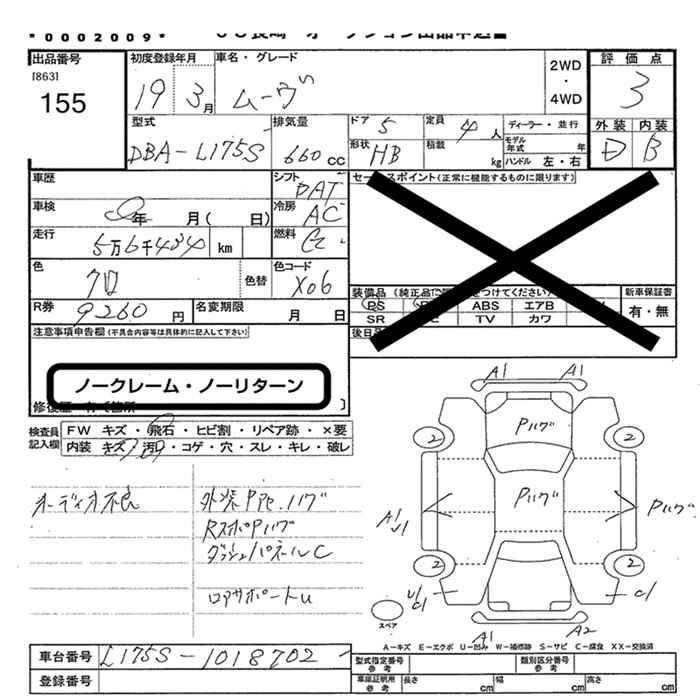 *0002009*
出品番号
[863]
155
初度登録年月
19 3月
車名・グレード
ムーヴ
2WD
・
4WD
評価点
3
外装 内装
D B
型式
DBA-L175S
排気量
660cc
ドア 5
定員 4人
ディーラー・並行
形状 HB
積載 kg
モデル年式 年
ハンドル 左・右
車歴
シフト
車検 年 月( 日)
冷房 AC
走行
5万6千484 km
燃料
色
クロ
色替
色コード
X06
R券
9260円
名変期限 月 日
セールスポイント(正常に機能するものに限ります)
装備品
ABS エアB
SR TV カワ
新車保証書
有・無
注意事項申告欄(不具合内容等は具体的に記入して下さい)
ノークレーム・ノーリターン
検査員記入欄
FW キズ・飛石・ヒビ割・リペア跡・×要
内装 キズ・汚れ・コゲ・穴・スレ・キレ・破レ
オーディオ不良
ダッシュパネルC
ロアサポートU
A1 A1
2 2
A1
2 2
U1
C1
C1
スペア
A1 A2
A-キズ E-エクボ U-凹み W-補修跡 S-サビ C-腐食 XX-交換済
車台番号 L175S-1018702
登録番号
型式指定番号 参考
類別区分番号 参考
車庫証明用 参考 長さ cm 幅 cm 高さ cm